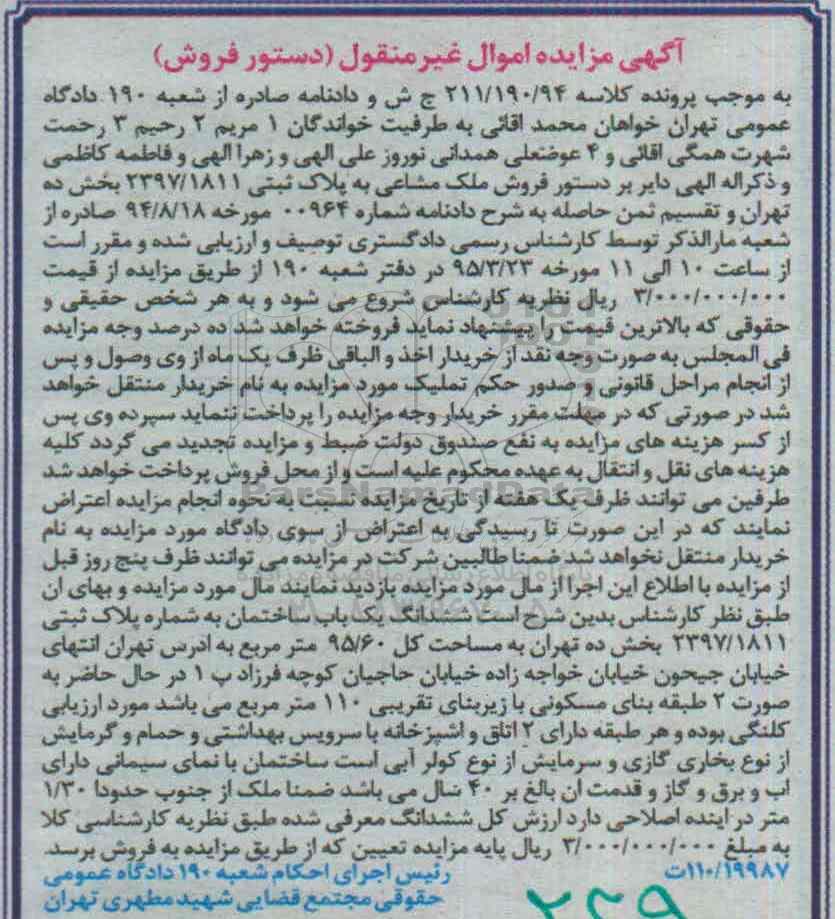 آگهی مزایده اموال غیرمنقول (دستور فروش)
به موجب پرونده کلاسه ۲۱۱/۱۹۰/۹۴ ج ش و دادنامه صادره از شعبه ۱۹۰ دادگاه
عمومی تهران خواهان محمد اقائی به طرفیت خواندگان ۱ مریم ۲ رحیم ۳ رحمت
شهرت همگی اقائی و ۴ عوضعلی همدانی نوروز علی الهی و زهرا الهی و فاطمه کاظمی
و ذکراله الهی دایر بر دستور فروش ملک مشاعی به پلاک ثبتی ۲۳۹۷/۱۸۱۱ بخش ده
تهران و تقسیم ثمن حاصله به شرح دادنامه شماره ۰۰۹۶۴ مورخه ۹۴/۸/۱۸ صادره از
شعبه مارالذکر توسط کارشناس رسمی دادگستری توصیف و ارزیابی شده و مقرر است
از ساعت ۱۰ الی ۱۱ مورخه ۹۵/۳/۲۳ در دفتر شعبه ۱۹۰ از طریق مزایده از قیمت
۳/۰۰۰/۰۰۰/۰۰۰ ریال نظریه کارشناس شروع می شود و به هر شخص حقیقی و
حقوقی که بالاترین قیمت را پیشنهاد نماید فروخته خواهد شد ده درصد وجه مزایده
فی المجلس به صورت وجه نقد از خریدار اخذ و الباقی ظرف یک ماه از وی وصول و پس
از انجام مراحل قانونی و صدور حکم تملیک مورد مزایده به نام خریدار منتقل خواهد
شد در صورتی که در مهلت مقرر خریدار وجه مزایده را پرداخت ننماید سپرده وی پس
از کسر هزینه های مزایده به نفع صندوق دولت ضبط و مزایده تجدید می گردد کلیه
هزینه های نقل و انتقال به عهده محکوم علیه است و از محل فروش پرداخت خواهد شد
طرفین می توانند ظرف یک هفته از تاریخ مزایده نسبت به نحوه انجام مزایده اعتراض
نمایند که در این صورت تا رسیدگی به اعتراض از سوی دادگاه مورد مزایده به نام
خریدار منتقل نخواهد شد ضمنا طالبین شرکت در مزایده می توانند ظرف پنج روز قبل
از مزایده با اطلاع این اجرا از مال مورد مزایده بازدید نمایند مال مورد مزایده و بهای ان
طبق نظر کارشناس بدین شرح است ششدانگ یک باب ساختمان به شماره پلاک ثبتی
۲۳۹۷/۱۸۱۱ بخش ده تهران به مساحت کل ۹۵/۶۰ متر مربع به ادرس تهران انتهای
خیابان جیحون خیابان خواجه زاده خیابان حاجیان کوچه فرزاد پ ۱ در حال حاضر به
صورت ۲ طبقه بنای مسکونی با زیربنای تقریبی ۱۱۰ متر مربع می باشد مورد ارزیابی
کلنگی بوده و هر طبقه دارای ۲ اتاق و اشپزخانه با سرویس بهداشتی و حمام و گرمایش
از نوع بخاری گازی و سرمایش از نوع کولر آبی است ساختمان با نمای سیمانی دارای
اب و برق و گاز و قدمت ان بالغ بر ۴۰ سال می باشد ضمنا ملک از جنوب حدودا ۱/۳۰
متر در اینده اصلاحی دارد ارزش کل ششدانگ معرفی شده طبق نظریه کارشناسی کلا
به مبلغ ۳/۰۰۰/۰۰۰/۰۰۰ ریال پایه مزایده تعیین که از طریق مزایده به فروش برسد.
۱۱۰/۱۹۹۸۷ت
رئیس اجرای احکام شعبه ۱۹۰ دادگاه عمومی
حقوقی مجتمع قضایی شهید مطهری تهران
۲۳۹
ParsNamadData